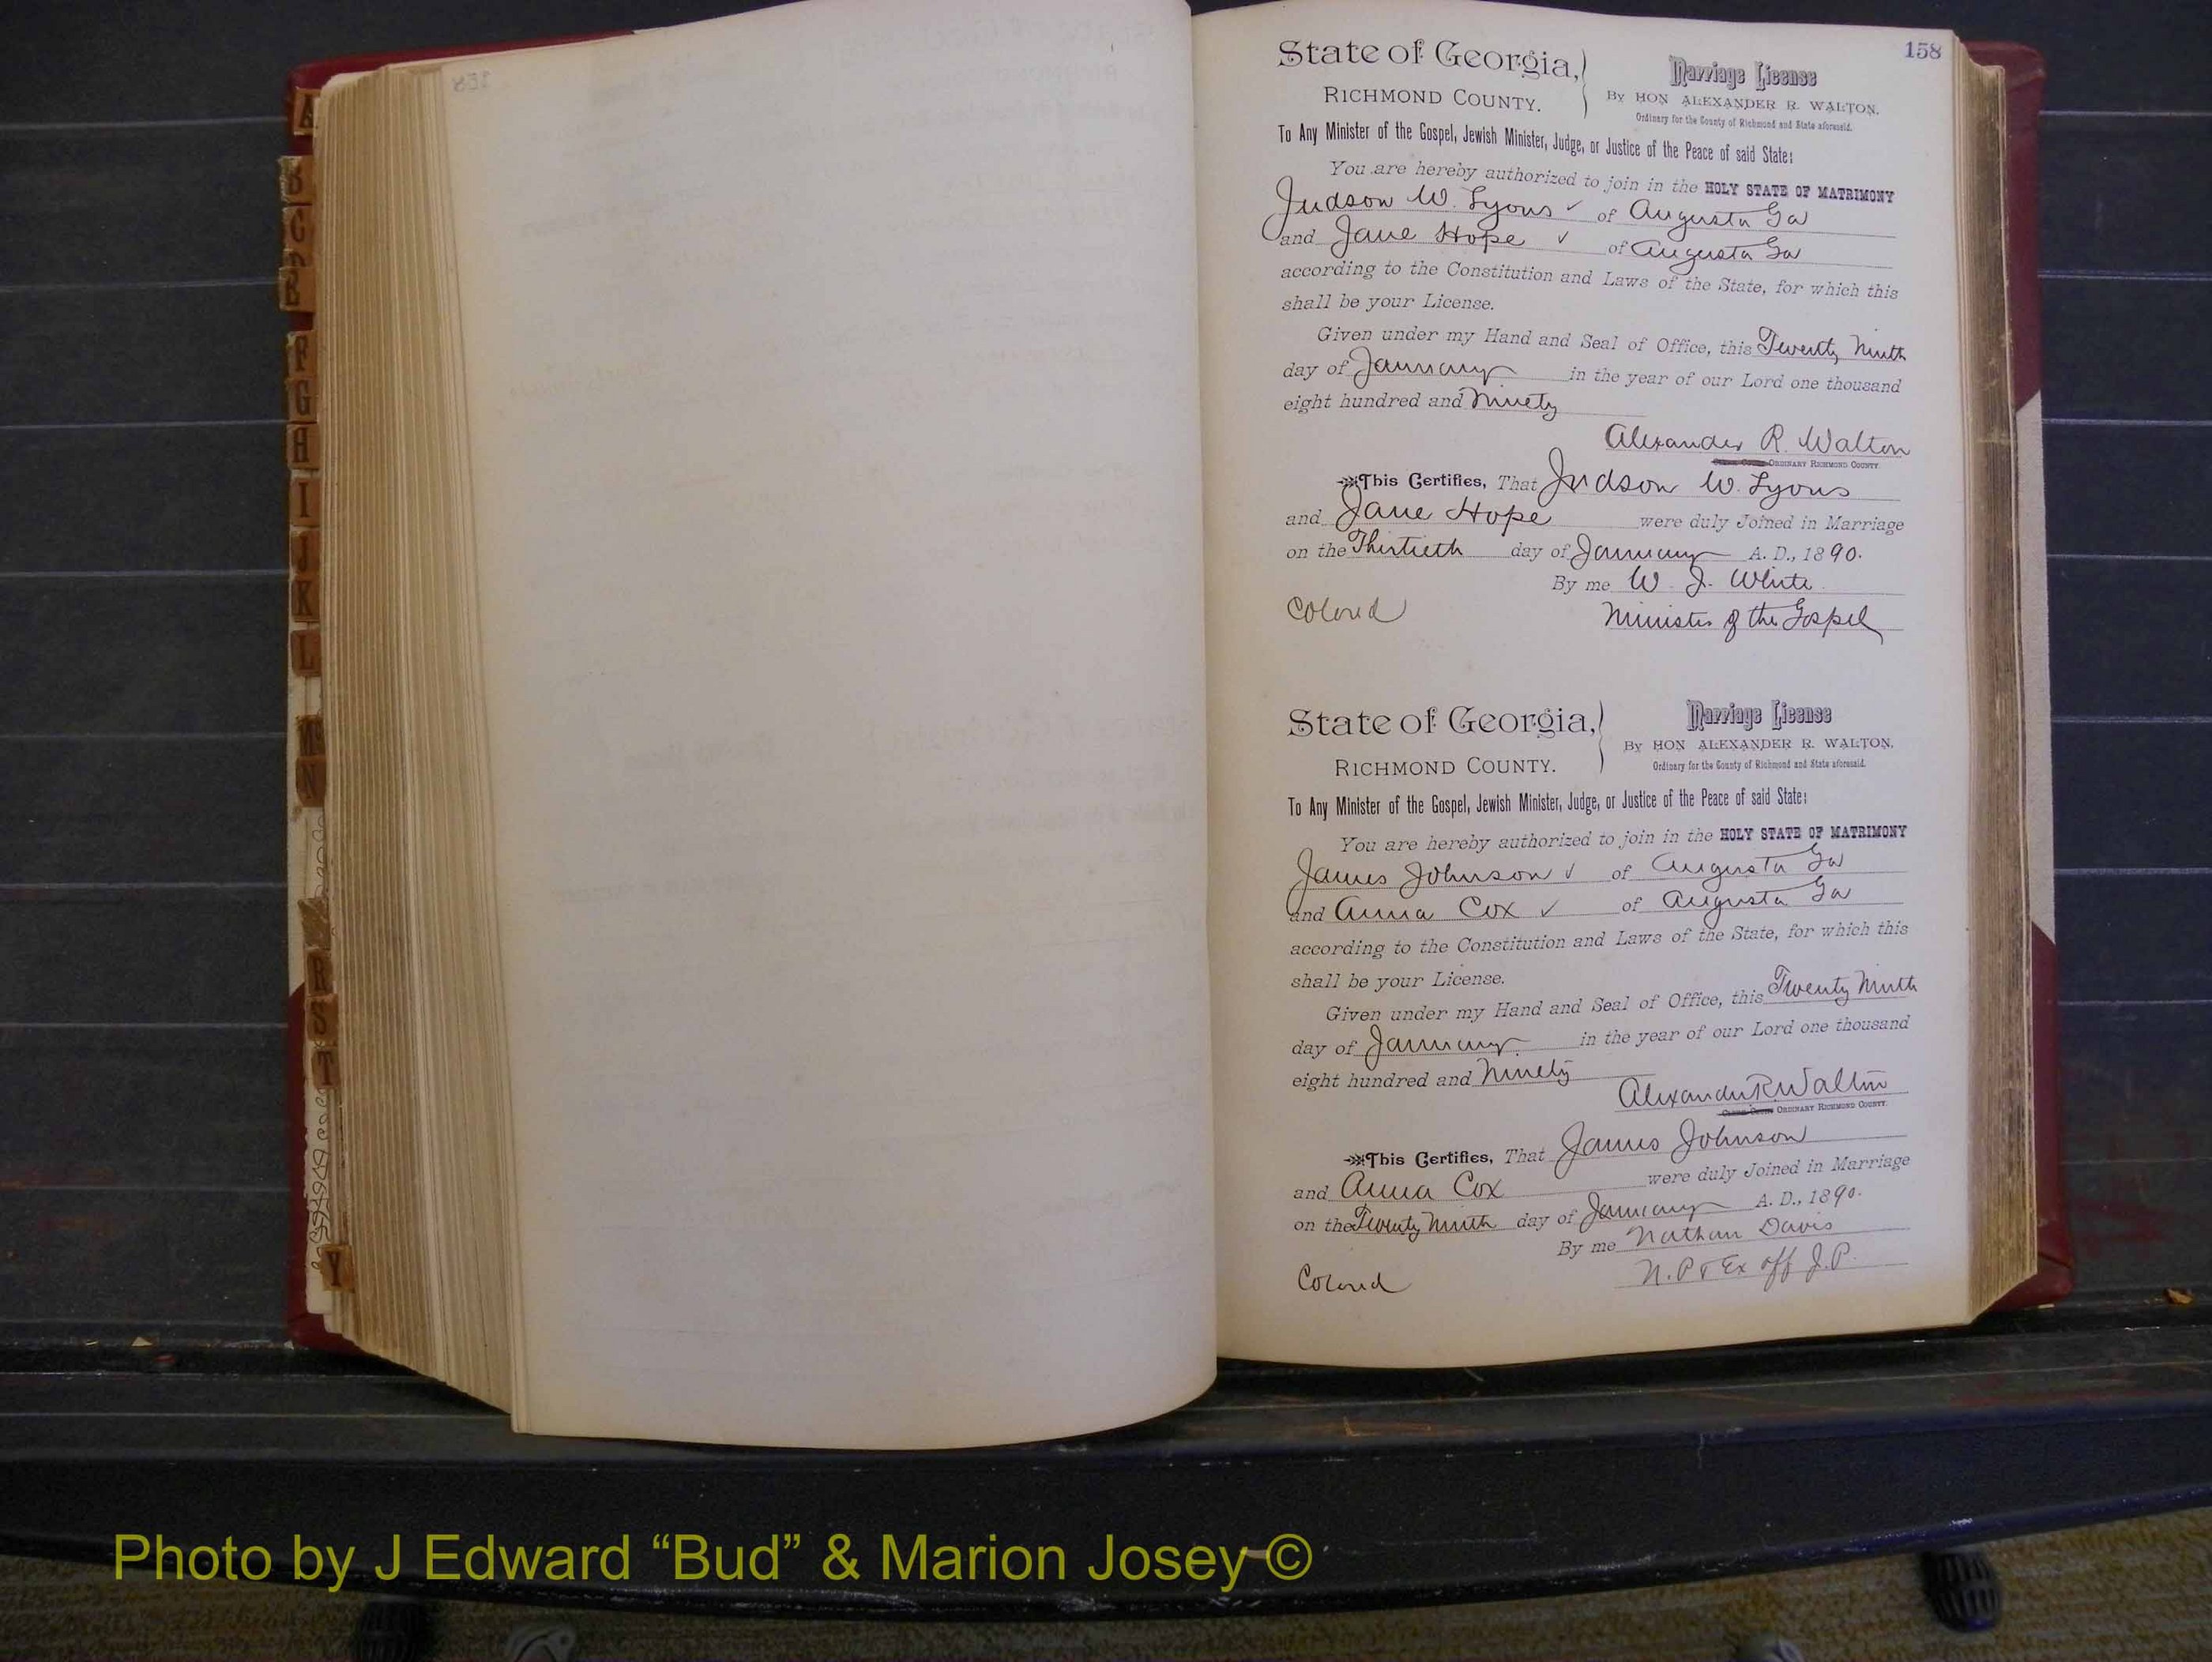 158
State of Georgia,
RICHMOND COUNTY.
Marriage License
By HON ALEXANDER R. WALTON,
Ordinary for the County of Richmond and State aforesaid.
To Any Minister of the Gospel, Jewish Minister, Judge, or Justice of the Peace of said State:
You are hereby authorized to join in the HOLY STATE OF MATRIMONY
Judson W. Lyons ✓ of Augusta Ga
and Jane Hope ✓ of Augusta Ga
according to the Constitution and Laws of the State, for which this
shall be your License.
Given under my Hand and Seal of Office, this Twenty Ninth
day of January in the year of our Lord one thousand
eight hundred and Ninety
Alexander R. Walton
ORDINARY RICHMOND COUNTY.
This Certifies, That Judson W. Lyons
and Jane Hope were duly Joined in Marriage
on the Thirtieth day of January A. D., 1890.
By me W. J. White
Colored Minister of the Gospel
State of Georgia,
RICHMOND COUNTY.
Marriage License
By HON ALEXANDER R. WALTON,
Ordinary for the County of Richmond and State aforesaid.
To Any Minister of the Gospel, Jewish Minister, Judge, or Justice of the Peace of said State:
You are hereby authorized to join in the HOLY STATE OF MATRIMONY
James Johnson ✓ of Augusta Ga
and Anna Cox ✓ of Augusta Ga
according to the Constitution and Laws of the State, for which this
shall be your License.
Given under my Hand and Seal of Office, this Twenty Ninth
day of January in the year of our Lord one thousand
eight hundred and Ninety
Alexander R. Walton
ORDINARY RICHMOND COUNTY.
This Certifies, That James Johnson
and Anna Cox were duly Joined in Marriage
on the Twenty Ninth day of January A. D., 1890.
By me Nathan Davis
Colored N. P & Ex off J. P.
A
B
C
F
G
H
I
J
K
L
Mc
N
R
S
T
Y
Photo by J Edward “Bud” & Marion Josey ©